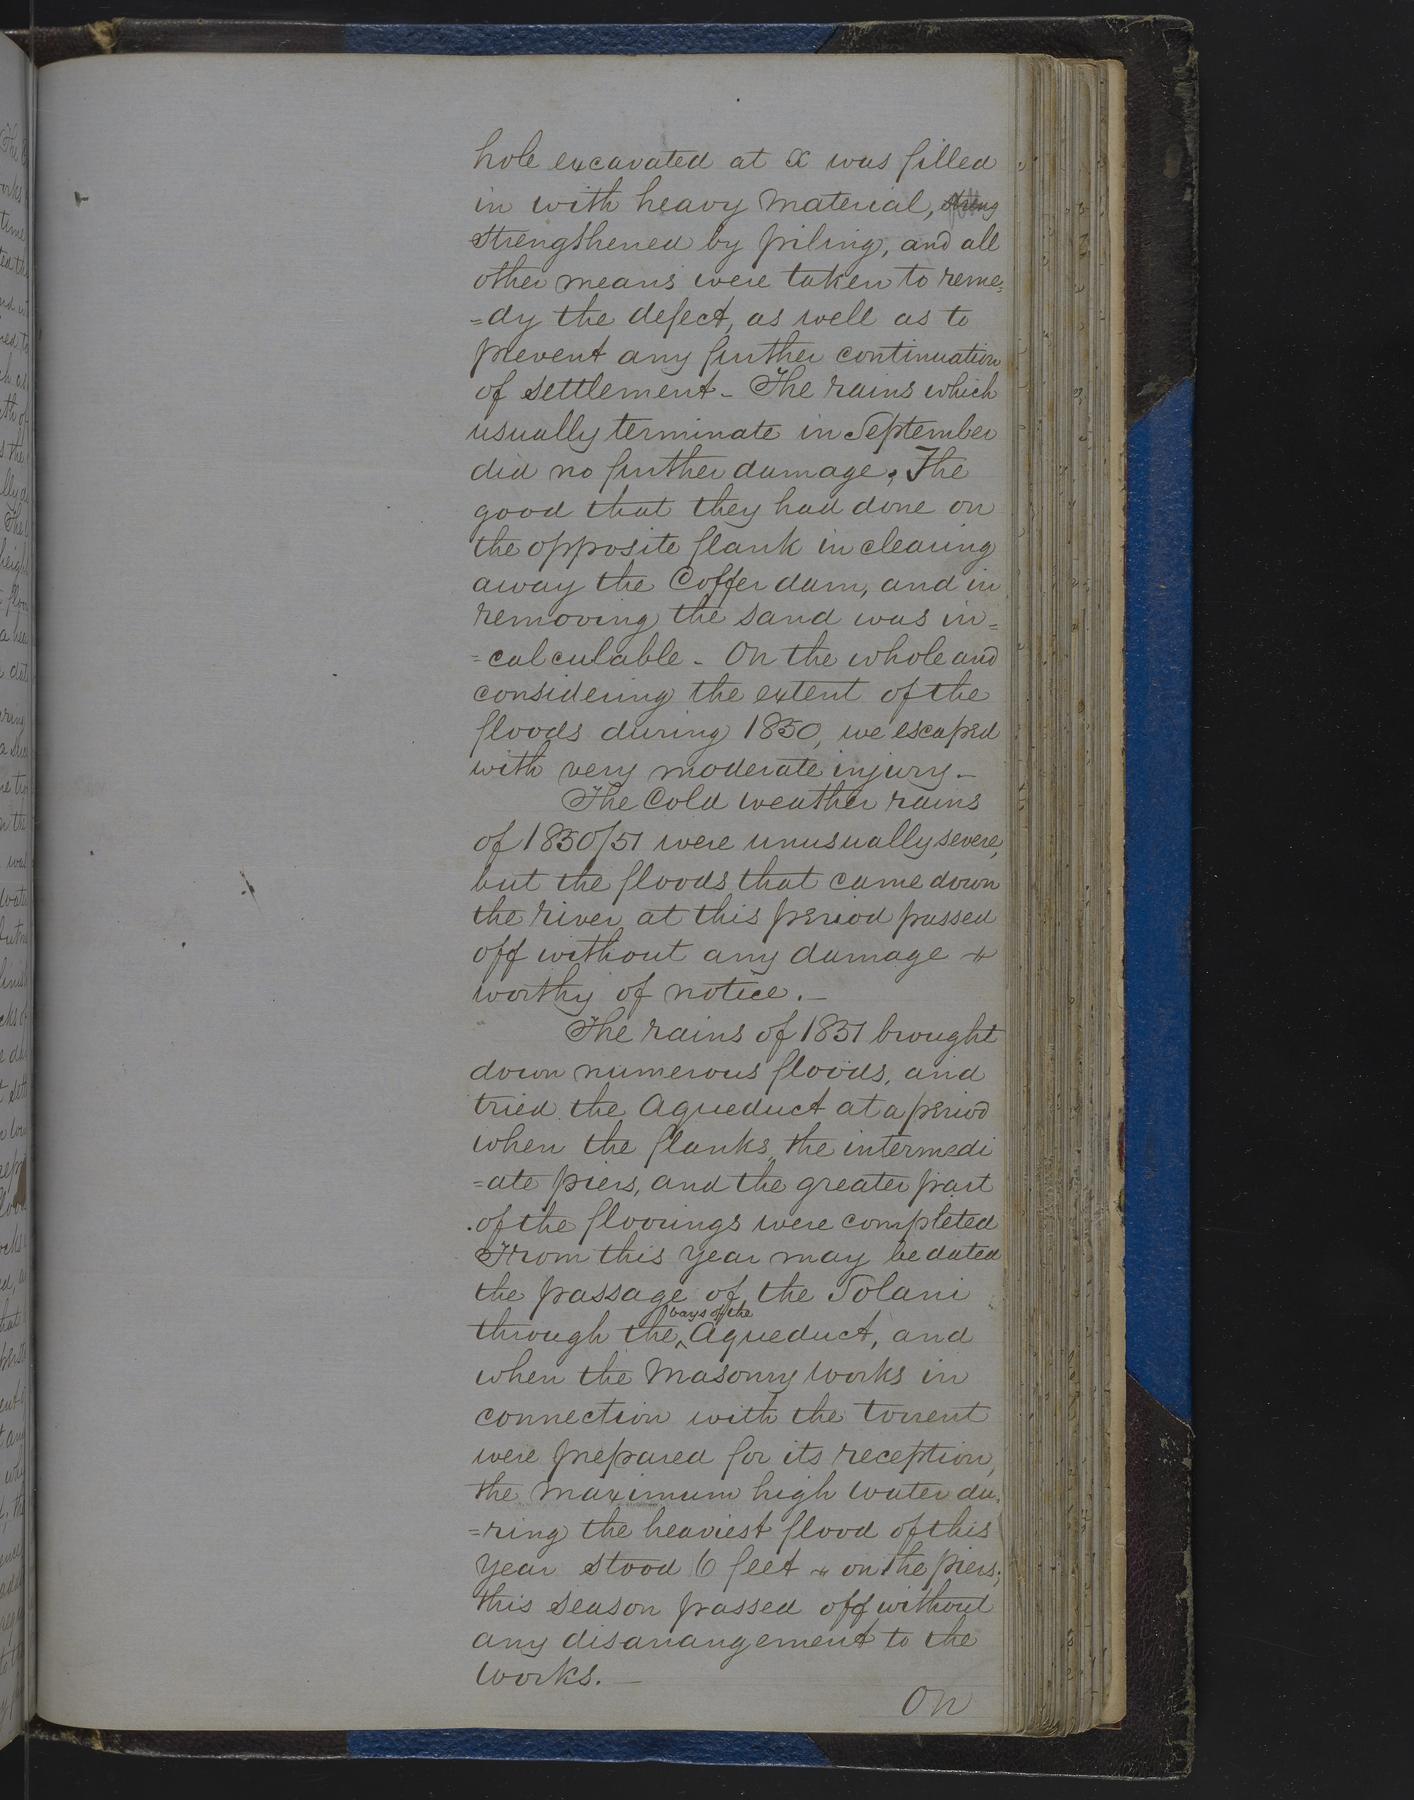 hole excavated at x was filled
in with heavy material, streng
strengthened by piling, and all
other means were taken to reme=
=dy the defect, as well as to
prevent any further continuation
of settlement - The rains which
usually terminate in September
did no further damage; The
good that they had done on
the opposite flank in clearing
away the Coffer dam, and in
removing the sand was in=
=calculable - On the whole and
considering the extent of the
floods during 1850, we escaped
with very moderate injury -
The Cold weather rains
of 1850/51 were unusually severe,
but the floods that came down
the river at this period passed
off without any damage
worthy of notice. -
The rains of 1851 brought
down numerous floods, and
tried the Aqueduct at a period
when the flanks, the intermedi
=ate piers, and the greater part
of the floorings were completed
From this year may be dated
the passage of the Solani
through the bays of the Aqueduct, and
when the Masonry Works in
connection with the torrent
were prepared for its reception,
the maximum high water du=
=ring the heaviest flood of this
year stood 6 feet on the piers;
this season passed off without
any disarrangement to the
works. -
On